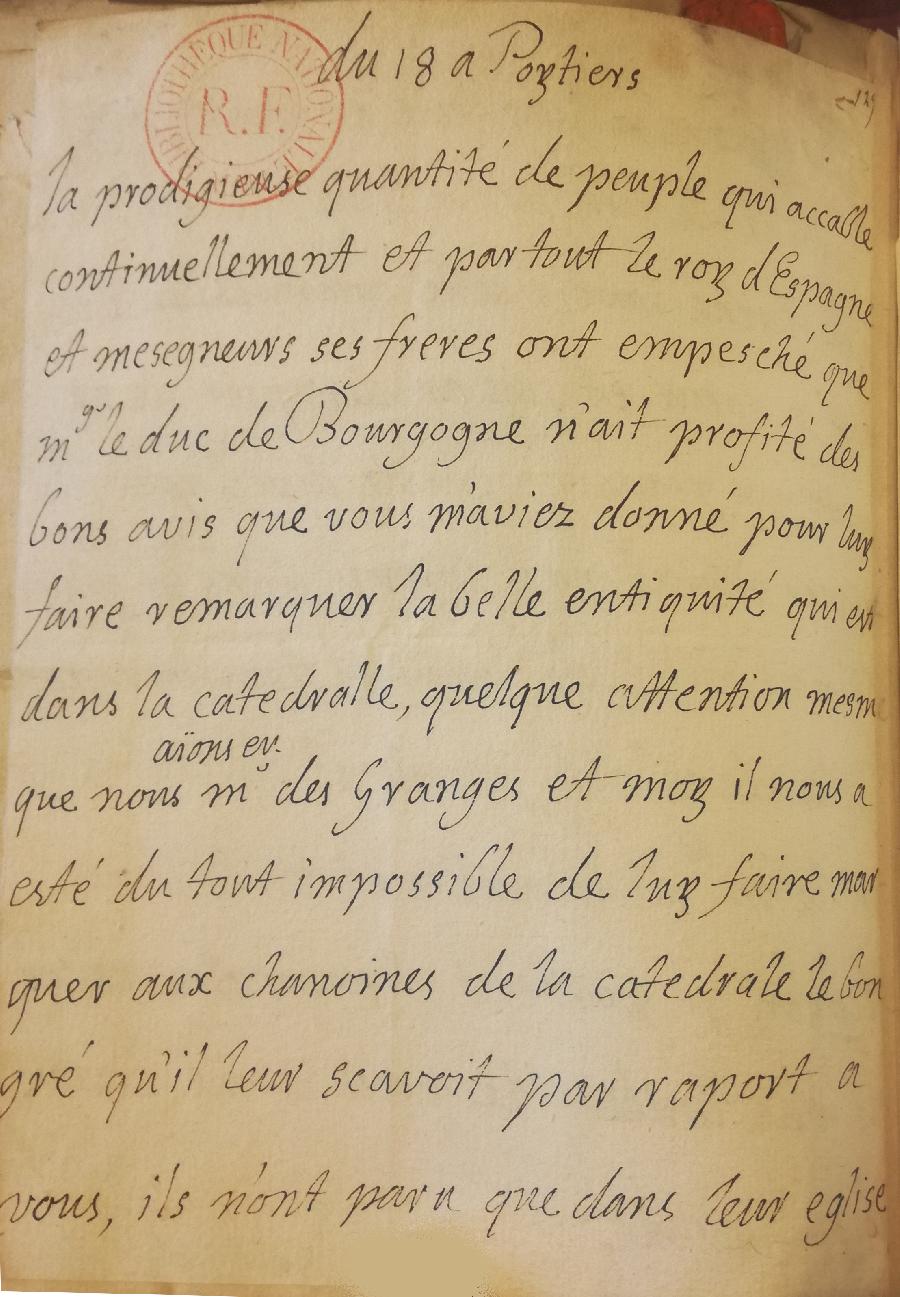 du 18 a Poytiers
BIBLIOTHEQUE NATIONALE
R.F.
129
la prodigieuse quantité de peuple qui accable
continuellement et par tout le roy d'Espagne
et mesegneurs ses freres ont empesché que
mgr le duc de Bourgogne n'ait profité des
bons avis que vous m'aviez donné pour luy
faire remarquer la belle entiquité qui est
dans la catedralle, quelque attention mesme
aïons eu
que nous mr des Granges et moy il nous a
esté du tout impossible de luy faire mar
quer aux chanoines de la catedrale le bon
gré qu'il leur scavoit par raport a
vous, ils n'ont paru que dans leur eglise